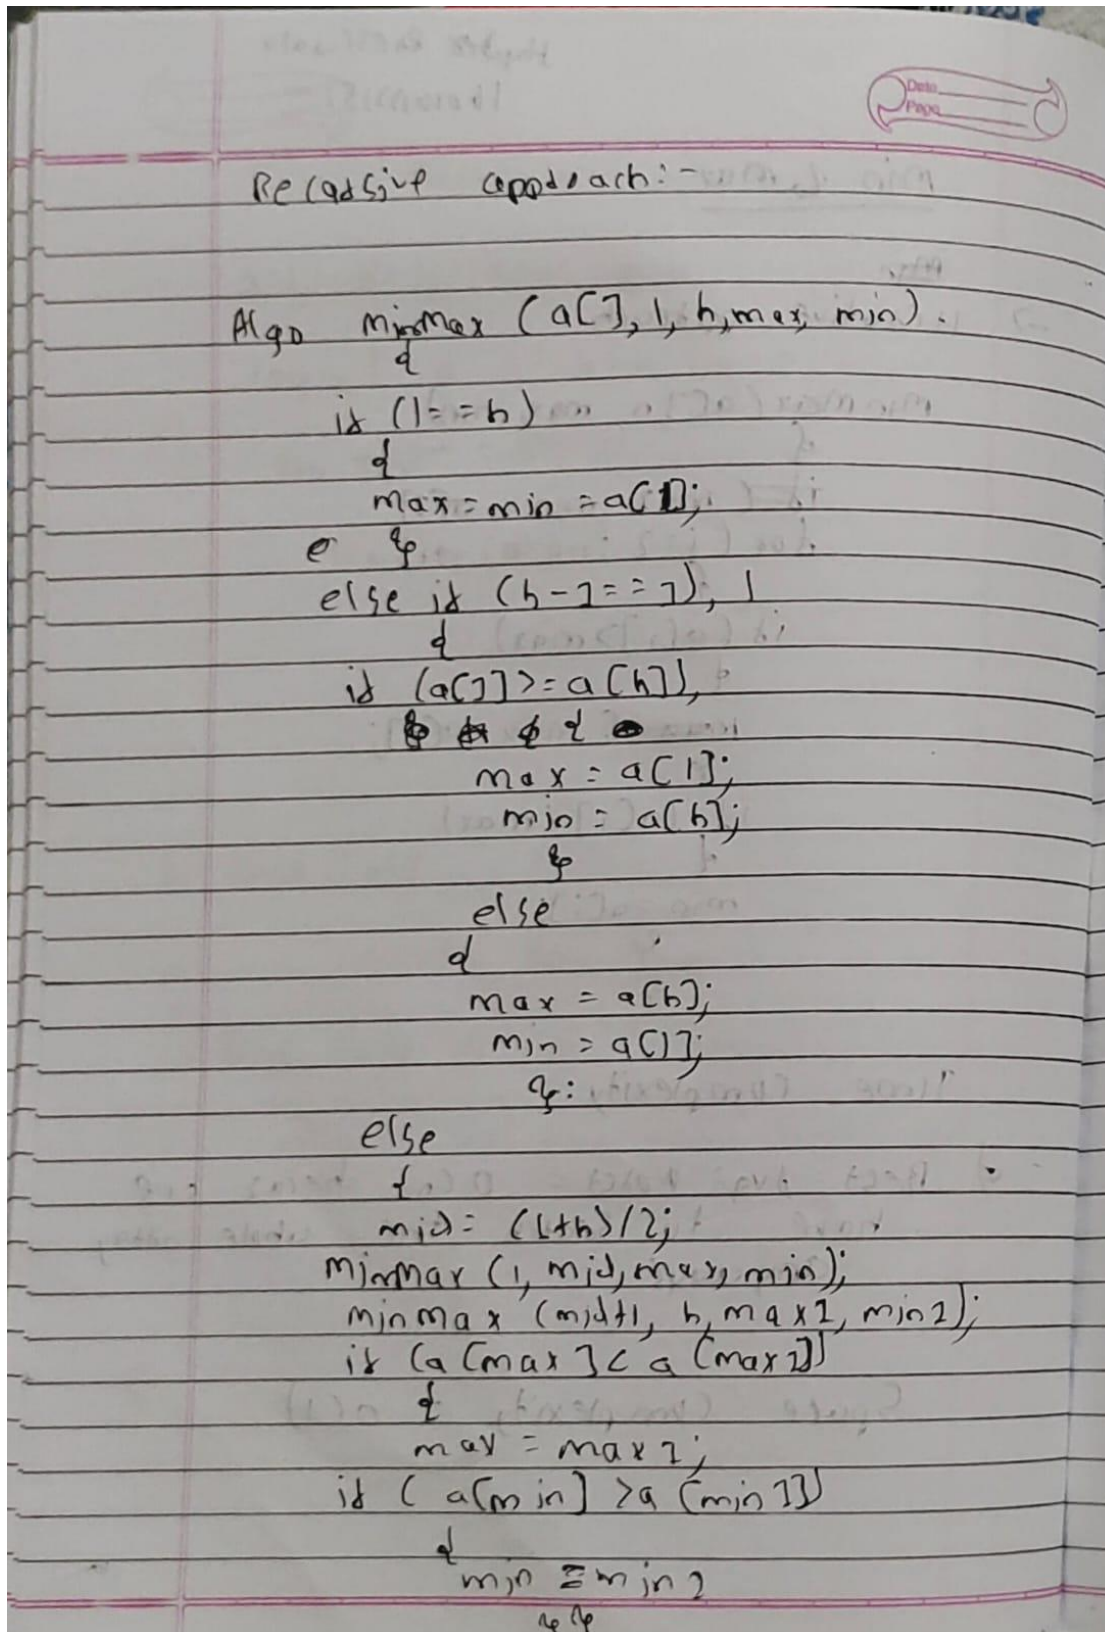 Date
Page
Recursive approach:-
Algo minmax (a[], l, h, max, min).
{
if (l==h)
{
max=min=a[l];
}
else if (h-1==l), l
{
if (a[l]>=a[h]),
{
max = a[l];
min = a[h];
}
else
{
max = a[h];
min = a[l];
}:
else
{
mid= (l+h)/2;
minmax (l, mid, max, min);
minmax (mid+1, h, max1, min1);
if (a[max]<a[max1])
{
max = max1;
if (a[min]>a[min1])
{
min = min1
}}